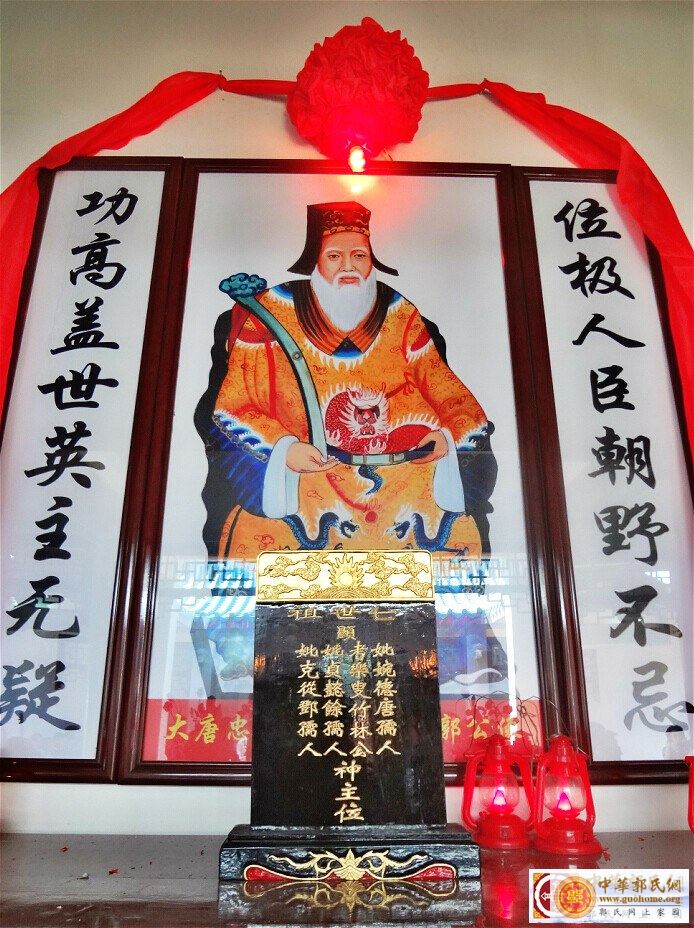 位极人臣朝野不忌
功高盖世英主无疑
七世祖
顯
妣婉德唐孺人
考樂叟竹林公
妣貞懿餘孺人
妣克從鄧孺人
神主位
大唐忠 郭公
中華郭氏網
www.guohome.org
郭氏网上家园